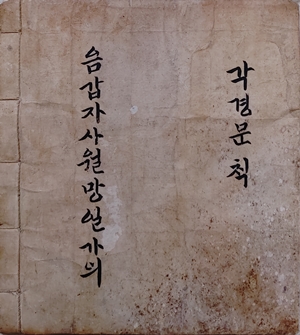 각경문 척
음갑자사월망일가의